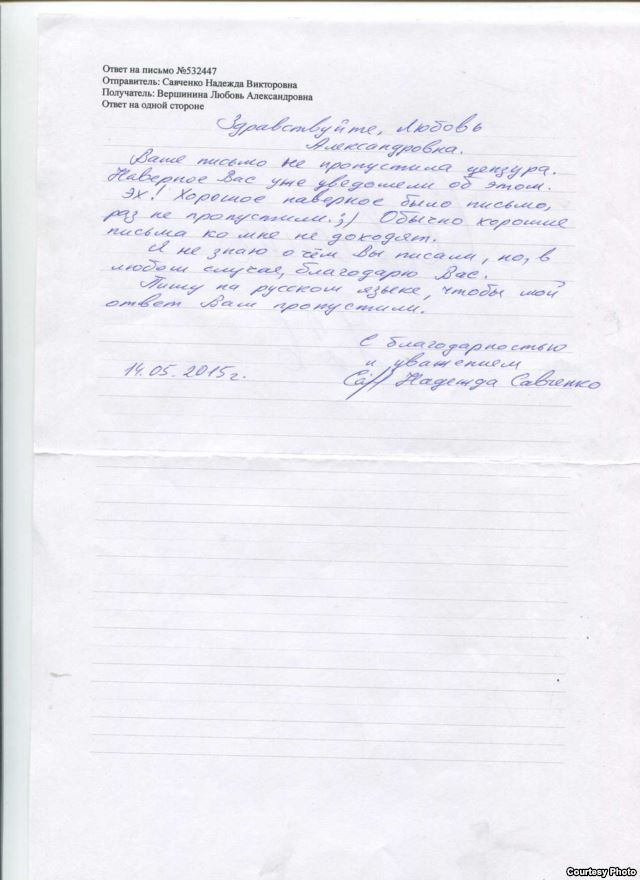 Ответ на письмо №532447
Отправитель: Савченко Надежда Викторовна
Получатель: Вершинина Любовь Александровна
Ответ на одной стороне
Здравствуйте, Любовь
Александровна.
Ваше письмо не пропустила цензура.
Наверное Вас уже уведомели об этом.
Эх! Хорошое наверное было письмо,
раз не пропустили. ;) Обычно хорошие
письма ко мне не доходят.
Я не знаю о чём Вы писали, но, в
любом случая, благодарю Вас.
Пишу на русском языке, чтобы мой
ответ Вам пропустили.
С благодарностью
и уважением
14.05.2015г.
Надежда Савченко
Courtesy Photo